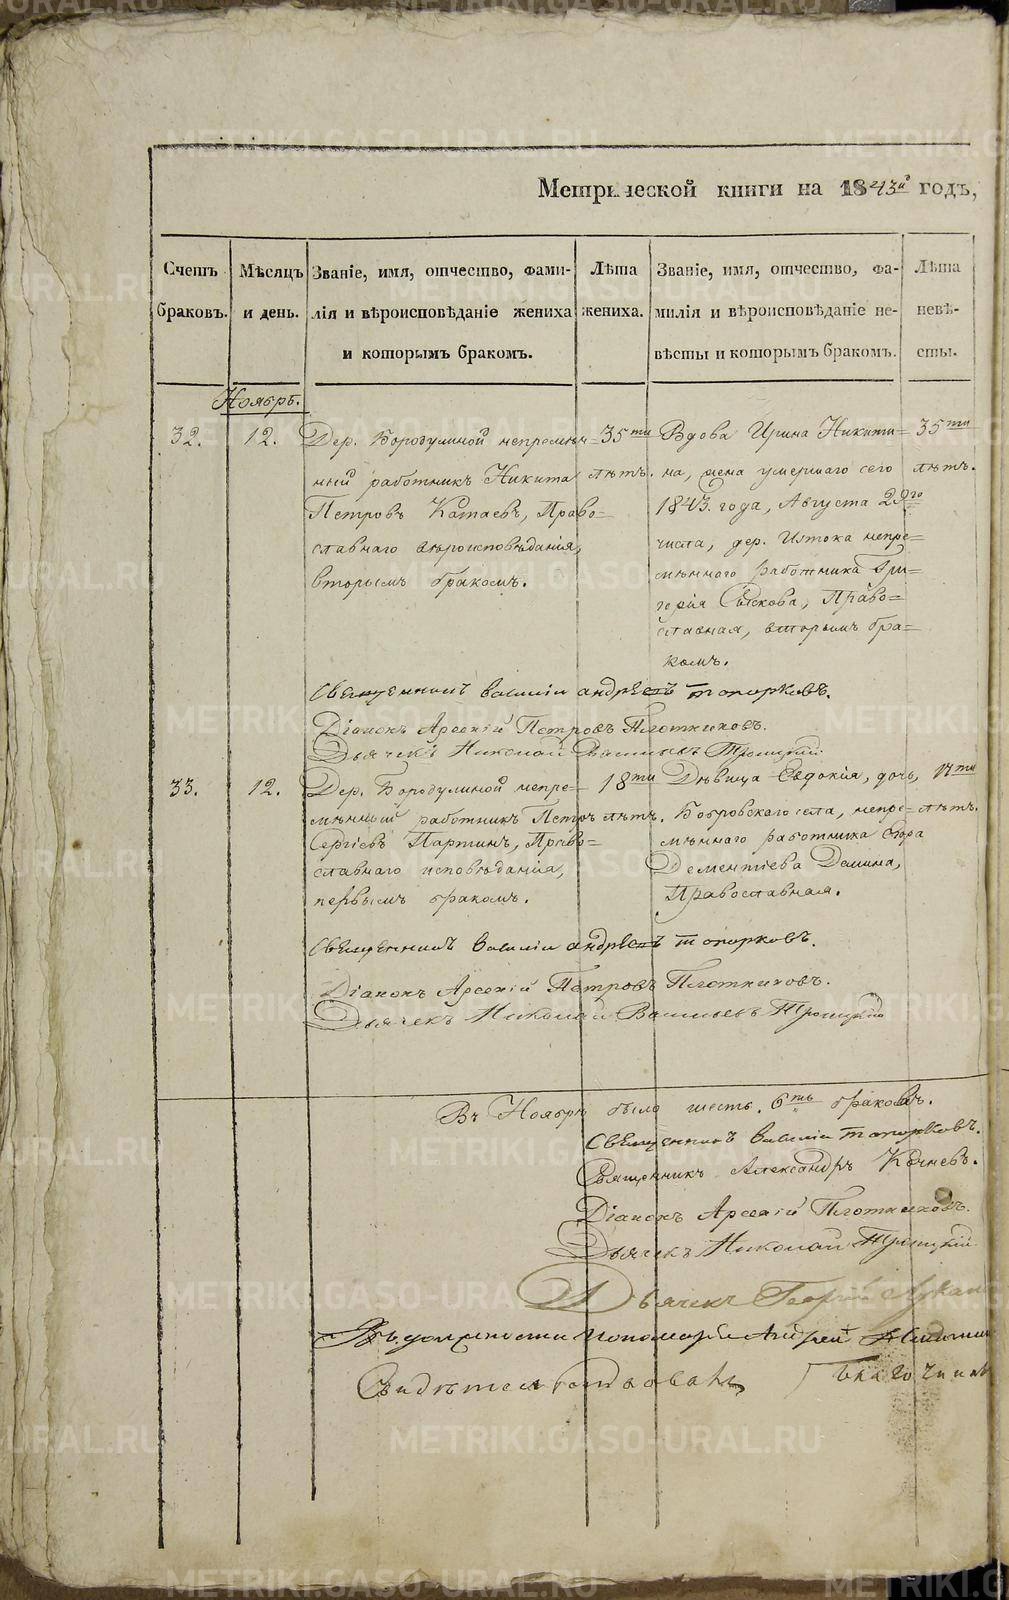 Метрической книги на 1843й годъ,
Счетъ браковъ.
Мѣсяцъ и день.
Званіе, имя, отчество, фами-
лія и вѣроисповѣданіе жениха
и которымъ бракомъ.
Лѣта
жениха.
Званіе, имя, отчество, фа-
милія и вѣроисповѣданіе не-
вѣсты и которымъ бракомъ.
Лѣта
невѣ-
сты.
Ноябрь.
32.
12.
Дер. Бородулиной непремѣн=
ный работникъ Никита
Петровъ Катаевъ, Право=
славнаго вѣроисповѣданія,
вторымъ бракомъ.
35ти
лѣтъ.
Вдова Ирина Никити=
на, жена умершаго сего
1843. года, Августа 29го
числа, дер. Истока непре=
мѣннаго работника Гри=
горія Сыскова, Право=
славная, вторымъ бра=
комъ.
35ти
лѣтъ.
Священникъ Василій Андреевъ Топорковъ.
Діаконъ Арсеній Петровъ Плотниковъ.
Дьячекъ Николай Васильевъ Троицкій.
33.
12.
Дер. Бородулиной непре=
мѣнный работникъ Петръ
Сергіевъ Партинъ, Право=
славнаго исповѣданія,
первымъ бракомъ.
18ти
лѣтъ.
Дѣвица Евдокія, дочь,
Бобровскаго села, непре=
мѣннаго работника
Дементіева Демина,
Православная.
17ти
лѣтъ.
Священникъ Василій Андреевъ Топорковъ.
Діаконъ Арсеній Петровъ Плотниковъ.
Дьячекъ Николай Васильевъ Троицкій
Въ Ноябрѣ было шесть. 6ть браковъ.
Священникъ Василій Топорковъ.
Священникъ Александръ Кочневъ.
Діаконъ Арсеній Плотниковъ.
Дьячекъ Николай Троицкій
Дьячекъ Георгій
Въ должности Пономаря Андрей
Свидѣтельствовалъ Благочинн